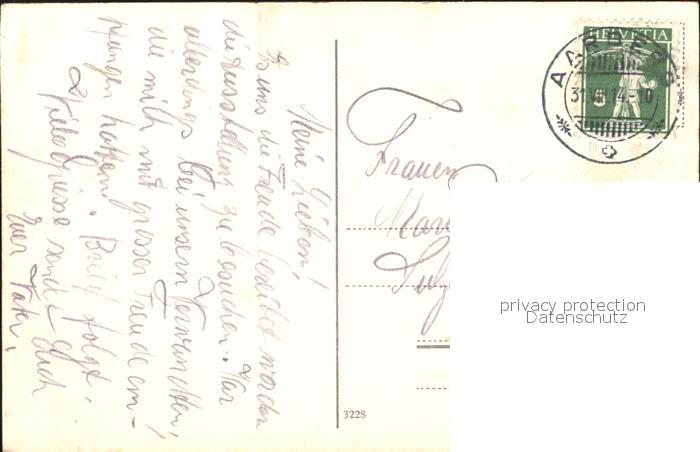 Meine Lieben!
Es uns die Freude bereitet worden
die Ausstellung zu besuchen. War
allerdings bei unsern Verwandten,
die mich mit grosser Freude em-
pfangen hatten. Brief folgt.
Viele Grüsse sendet Euch
Euer Vater.
HELVETIA
AARBERG
31.VII.14.-10
Frauen
Mar
Sulg
3228
privacy protection
Datenschutz